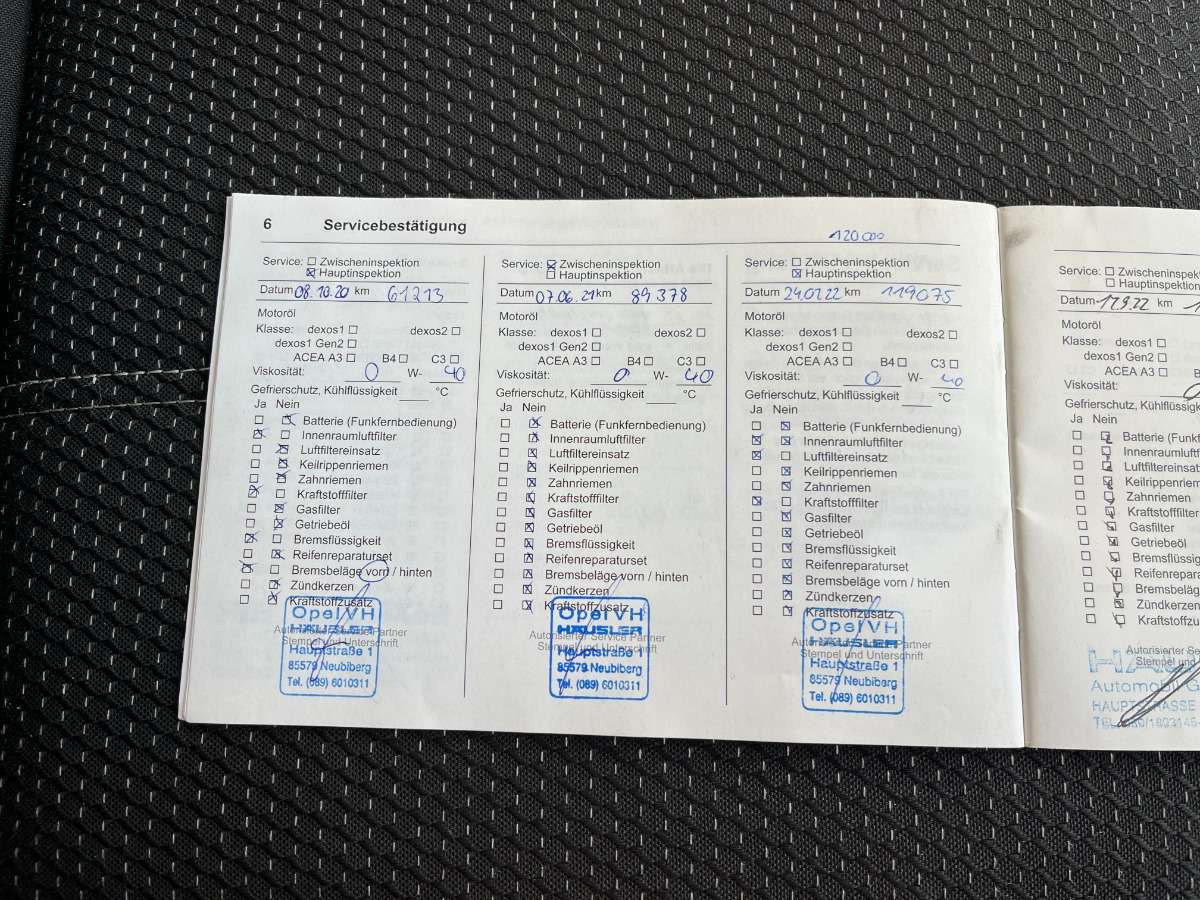 6 Servicebestätigung
120 000
Service: Zwischeninspektion
Hauptinspektion
Datum 08.10.20 km 61213
Motoröl
Klasse: dexos1 dexos2
dexos1 Gen2
ACEA A3 B4 C3
Viskosität: 0 W- 40
Gefrierschutz, Kühlflüssigkeit °C
Ja Nein
Batterie (Funkfernbedienung)
Innenraumluftfilter
Luftfiltereinsatz
Keilrippenriemen
Zahnriemen
Kraftstofffilter
Gasfilter
Getriebeöl
Bremsflüssigkeit
Reifenreparaturset
Bremsbeläge vorn / hinten
Zündkerzen
Kraftstoffzusatz
Autorisierter Service Partner
Stempel und Unterschrift
Opel VH
HÄUSLER
Hauptstraße 1
85579 Neubiberg
Tel. (089) 6010311
Service: Zwischeninspektion
Hauptinspektion
Datum 07.06.21 km 89 378
Motoröl
Klasse: dexos1 dexos2
dexos1 Gen2
ACEA A3 B4 C3
Viskosität: 0 W- 40
Gefrierschutz, Kühlflüssigkeit °C
Ja Nein
Batterie (Funkfernbedienung)
Innenraumluftfilter
Luftfiltereinsatz
Keilrippenriemen
Zahnriemen
Kraftstofffilter
Gasfilter
Getriebeöl
Bremsflüssigkeit
Reifenreparaturset
Bremsbeläge vorn / hinten
Zündkerzen
Kraftstoffzusatz
Autorisierter Service Partner
Stempel und Unterschrift
Opel VH
HÄUSLER
Hauptstraße 1
85579 Neubiberg
Tel. (089) 6010311
Service: Zwischeninspektion
Hauptinspektion
Datum 24.01.22 km 119075
Motoröl
Klasse: dexos1 dexos2
dexos1 Gen2
ACEA A3 B4 C3
Viskosität: 0 W- 40
Gefrierschutz, Kühlflüssigkeit °C
Ja Nein
Batterie (Funkfernbedienung)
Innenraumluftfilter
Luftfiltereinsatz
Keilrippenriemen
Zahnriemen
Kraftstofffilter
Gasfilter
Getriebeöl
Bremsflüssigkeit
Reifenreparaturset
Bremsbeläge vorn / hinten
Zündkerzen
Kraftstoffzusatz
Autorisierter Service Partner
Stempel und Unterschrift
Opel VH
HÄUSLER
Hauptstraße 1
85579 Neubiberg
Tel. (089) 6010311
Service: Zwischeninspek
Hauptinspektion
Datum km
Motoröl
Klasse: dexos1
dexos1 Gen2
ACEA A3 B
Viskosität:
Gefrierschutz, Kühlflüssig
Ja Nein
Batterie (Funk
Innenraumluft
Luftfiltereinsat
Keilrippenrieme
Zahnriemen
Kraftstofffilter
Gasfilter
Getriebeöl
Bremsflüssig
Reifenrepara
Bremsbeläg
Zündkerzen
Kraftstoffzu
Autorisierter Se
Stempel und
Automobil G
HAUPTSTRASSE